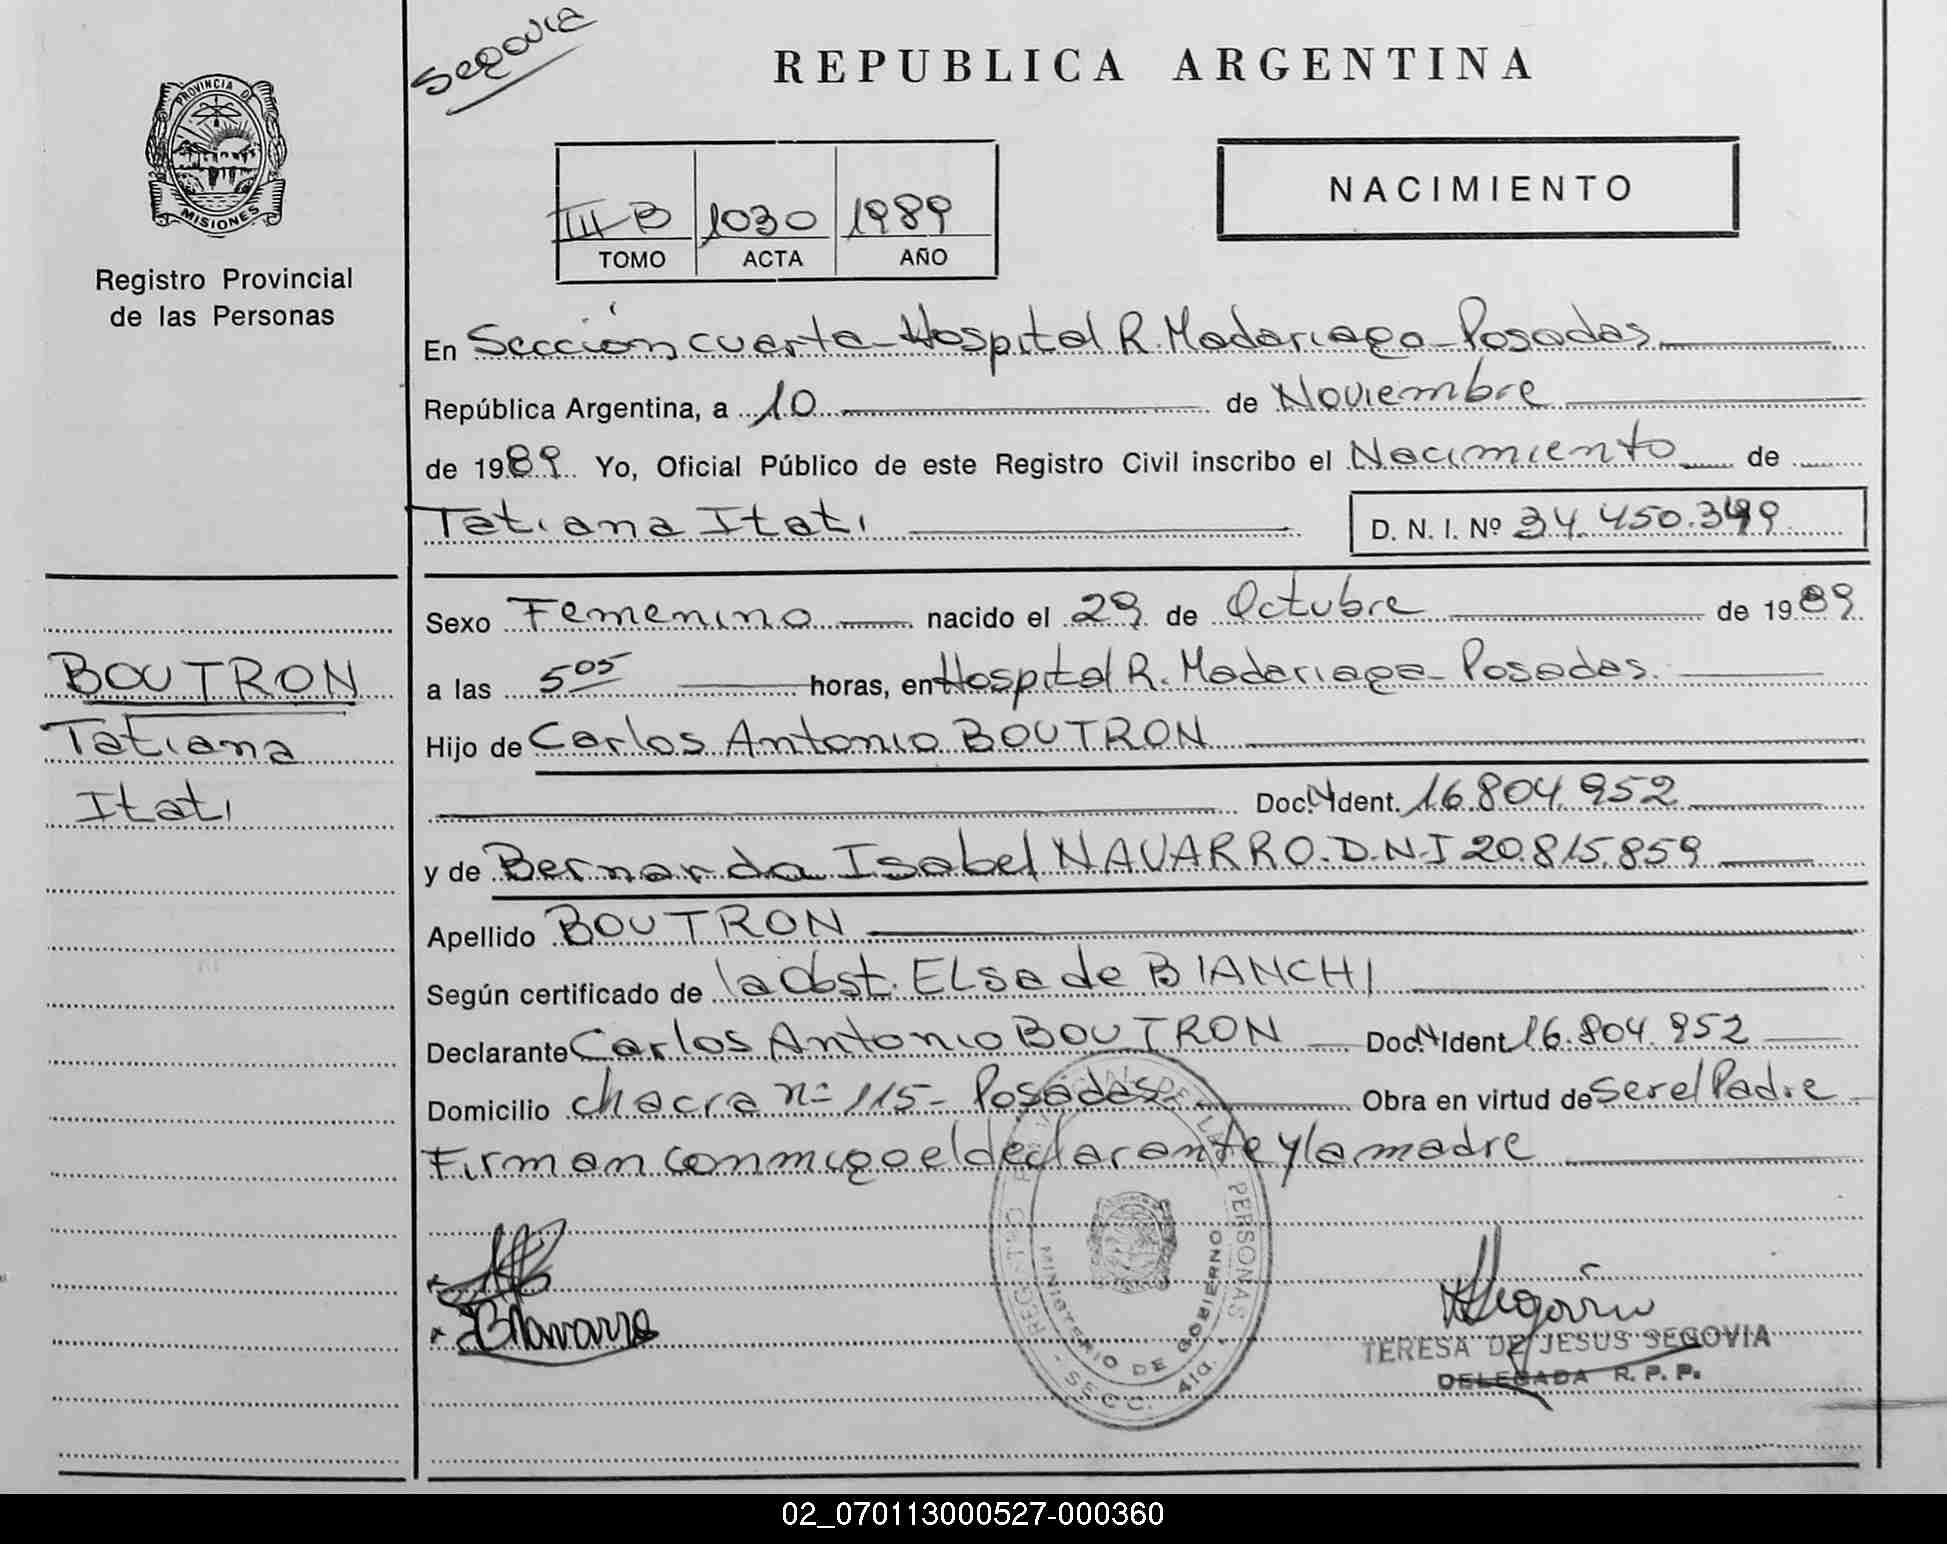 Segovia
REPUBLICA ARGENTINA
PROVINCIA DE
MISIONES
Registro Provincial
de las Personas
III B 1030 1989
TOMO ACTA AÑO
NACIMIENTO
En Sección cuarta - Hospital R. Madariaga - Posadas
República Argentina, a 10 de Noviembre
de 1989 Yo, Oficial Público de este Registro Civil inscribo el Nacimiento de
Tatiana Itati D. N. I. Nº 34.450.349
Sexo Femenino nacido el 29 de Octubre de 1989
a las 5 05 horas, en Hospital R. Madariaga - Posadas.
Hijo de Carlos Antonio BOUTRON
Doc. N Ident. 16.804.952
y de Bernarda Isabel NAVARRO. D.N.I 20.815.859
Apellido BOUTRON
Según certificado de la Obst. Elsa de BIANCHI
Declarante Carlos Antonio BOUTRON Doc. N Ident 16.804.952
Domicilio chacra nº 115 - Posadas Obra en virtud de ser el Padre
Firman conmigo el declarante y la madre
BOUTRON
Tatiana
Itati
BNavarro
REGISTRO PROVINCIAL DE LAS PERSONAS
MINISTERIO DE GOBIERNO
- SECC. 4ta. -
Segovia
TERESA DE JESUS SEGOVIA
DELEGADA R. P. P.
02_070113000527-000360